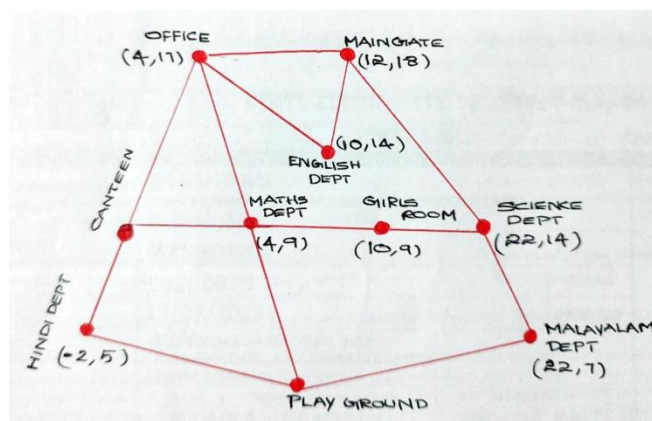 OFFICE
(4,17)
MAINGATE
(12,18)
(10,14)
ENGLISH
DEPT
CANTEEN
MATHS
DEPT
(4,9)
GIRLS
ROOM
(10,9)
SCIENCE
DEPT
(22,14)
HINDI DEPT
(-2,5)
MALAYALAM
DEPT
(22,7)
PLAY GROUND